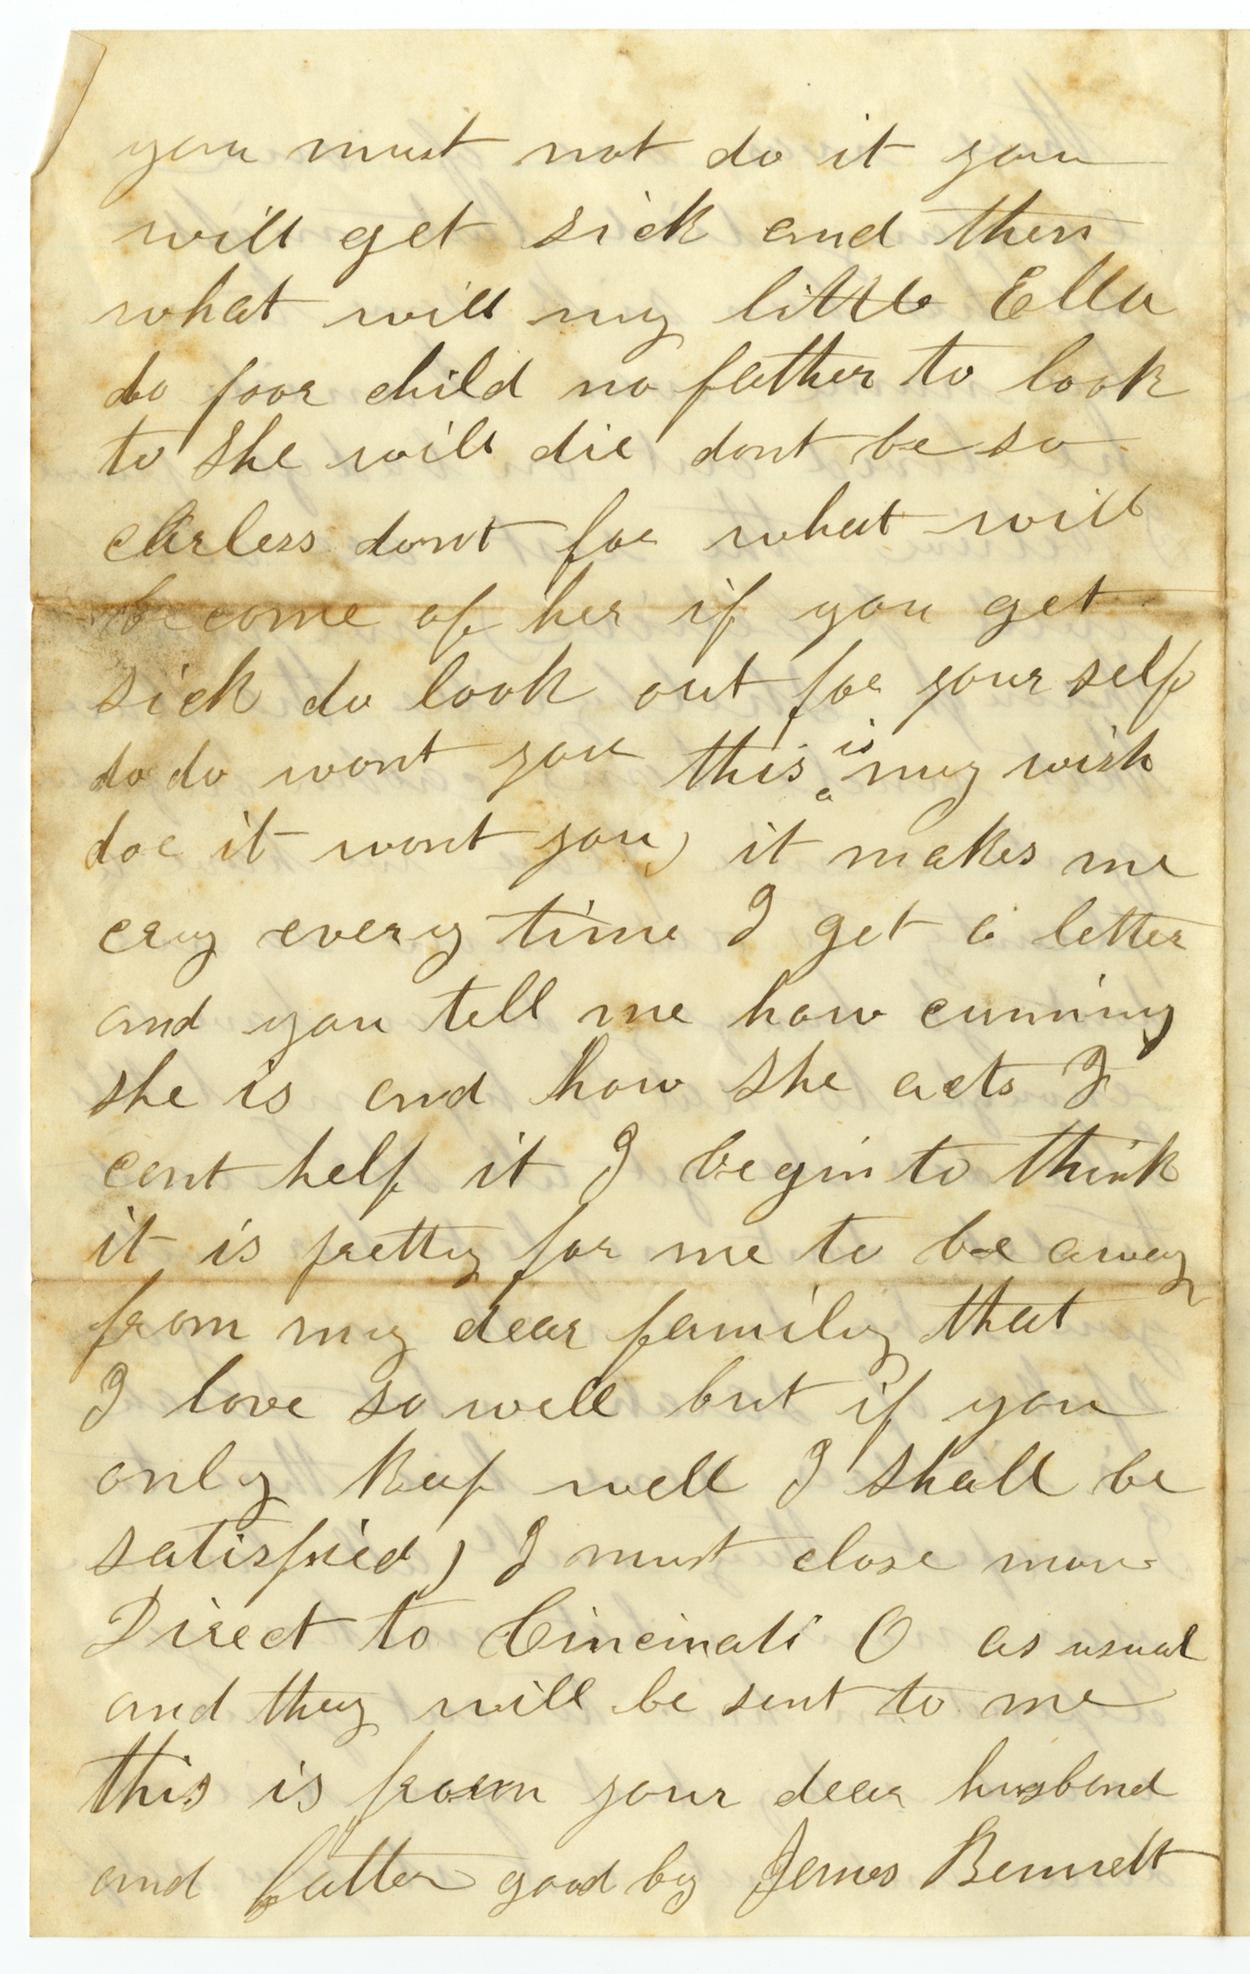 you must not do it you
will get sick and then
what will my little Ella
do poor child no father to look
to she will die dont be so
carless dont for what will
become of her if you get
sick do look out for your self
do do wont you this ^is my wish
doe it wont you, it makes me
cry every time I get a letter
and you tell me how cunning
she is and how she acts I
cant help it I begin to think
it is pretty for me to be away
from my dear family that
I love so well but if you
only keep well I shall be
satisfied, I must close now
Direct to Cincinati O as usual
and they will be sent to me
this is from your dear husband
and father good by James Bennett